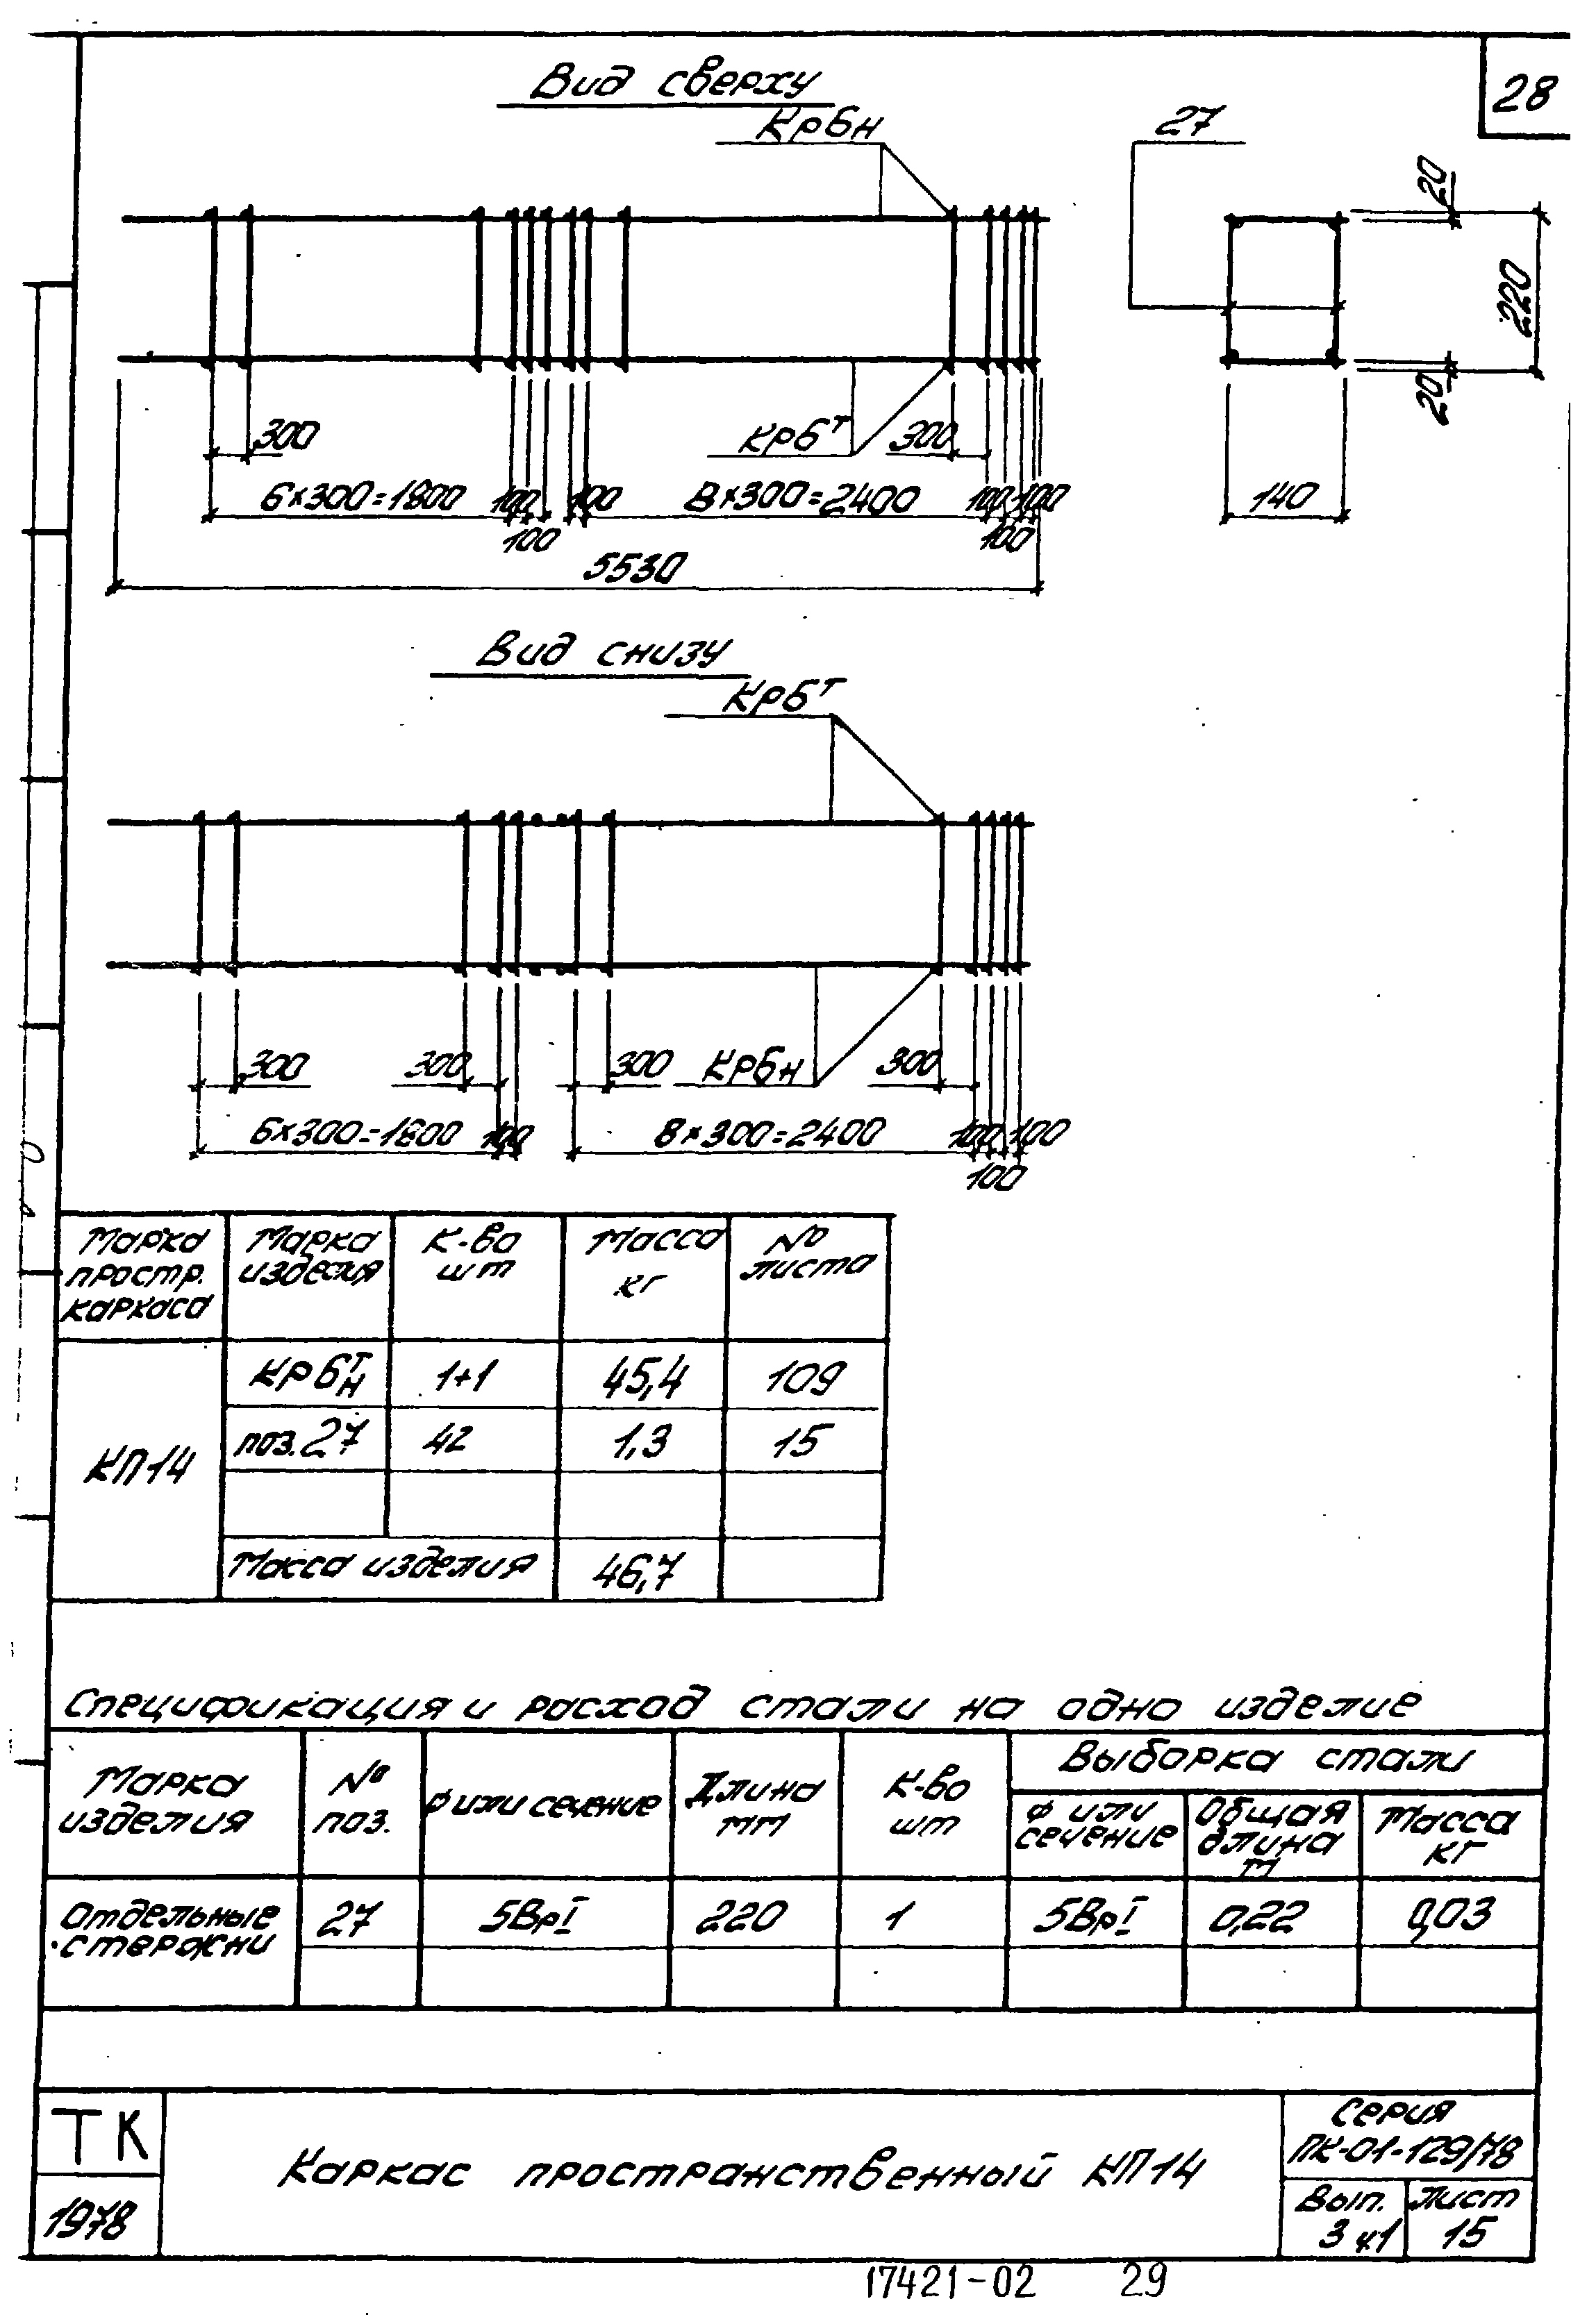 28
Вид сверху
Кр6н
27
20
220
20
140
300
Кр6т
300
6×300=1800
100
100
8×300=2400
100
100
100
100
5530
Вид снизу
Кр6т
300
300
300
Кр6н
300
6×300=1800
100
8×300=2400
100
100
100
Марка простр. каркаса
Марка изделия
К-во шт
Масса кг
№ листа
КП14
Кр6 т н
1+1
45,4
109
поз.27
42
1,3
15
Масса изделия
46,7
Спецификация и расход стали на одно изделие
Марка изделия
№ поз.
Ф или сечение
Длина мм
К-во шт
Выборка стали
Ф или сечение
Общая длина м
Масса кг
Отдельные стержни
27
5ВрI
220
1
5ВрI
0,22
0,03
ТК
1978
Каркас пространственный КП14
Серия
ПК-01-129/78
Вып.
3 ч1
Лист
15
17421-02
29